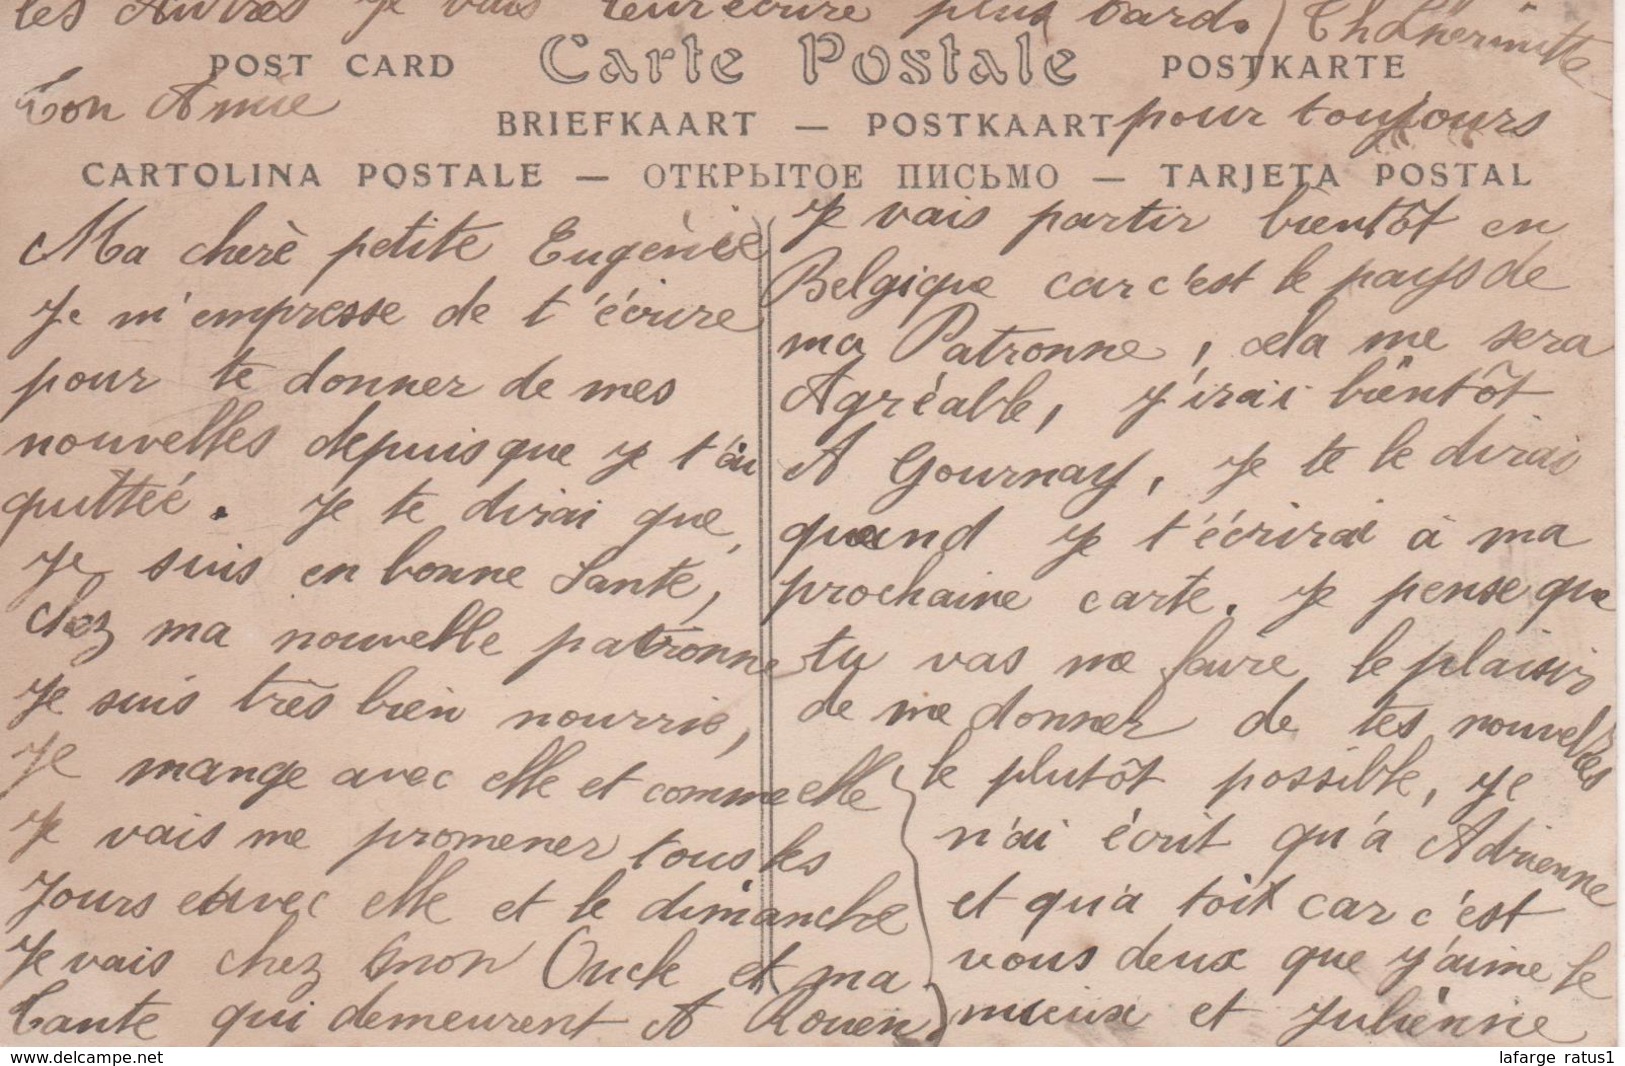 Ma cherè petite Eugènie
Je m'empresse de t'écrire
pour te donner de mes
nouvelles depuis que je t'ai
quitteé. Je te dirai que,
Je suis en bonne Sante,
chez ma nouvelle patronne
Je suis très bien nourrie,
Je mange avec elle et comme elle
Je vais me promener tous les
Jours avec elle et le dimanche
Je vais chez mon Oncle et ma
Tante qui demeurent A Rouen.
Je vais partir bientôt en
Belgique car c'est le pays de
ma Patronne, cela me sera
Agréable, j'irai bientôt
A Gournay, Je te le dirai
quand je t'écrirai à ma
prochaine carte. Je pense que
tu vas me faire le plaisir
de me donner de tes nouvelles
le plutôt possible, je
n'ai écrit qu'à Adrienne
et qu'à toit car c'est
vous deux que j'aime le
mieux et Julienne
les Autres Je vais leur écrire plus tard.
Ton Amie
pour toujours
Th Lhermitte
POST CARD Carte Postale POSTKARTE
BRIEFKAART — POSTKAART
CARTOLINA POSTALE — ОТКРЫТОЕ ПИСЬМО — TARJETA POSTAL
delcampe.net
lafarge ratus1